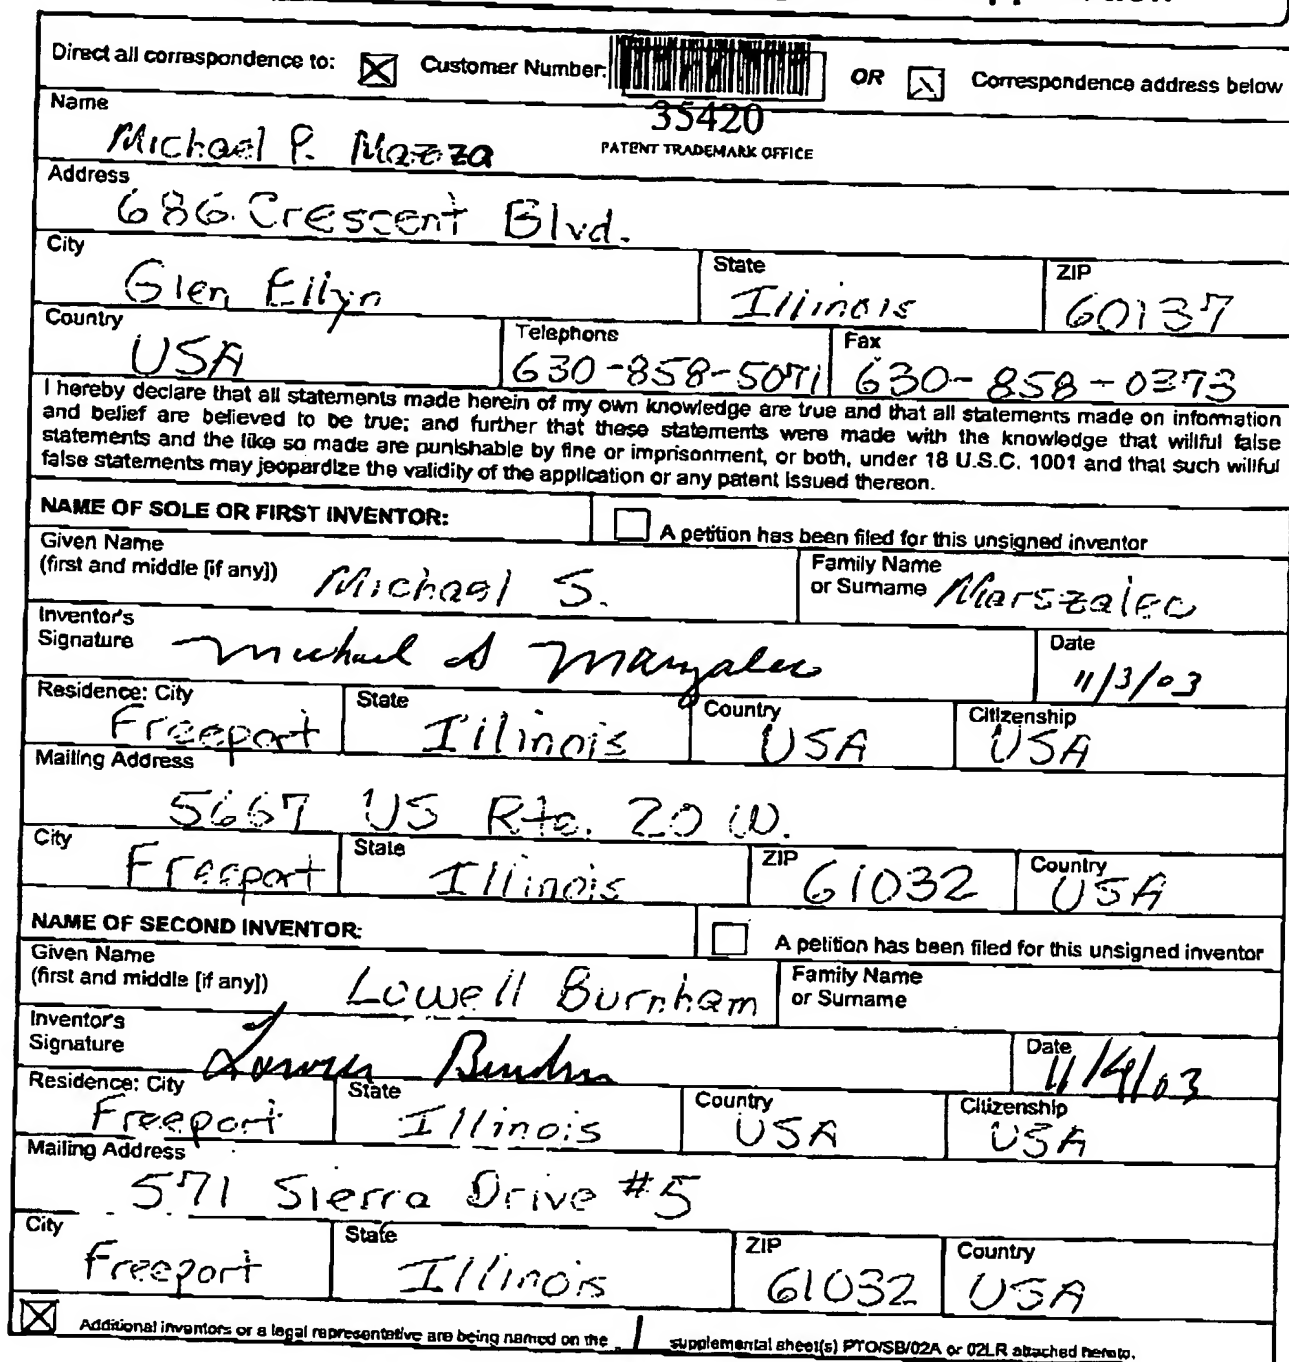 Direct all correspondence to: Customer Number: OR Correspondence address below
35420
PATENT TRADEMARK OFFICE
Name
Michael P. Mazza
Address
686 Crescent Blvd.
City State ZIP
Glen Ellyn Illinois 60137
Country Telephone Fax
USA 630-858-5071 630-858-0373
I hereby declare that all statements made herein of my own knowledge are true and that all statements made on information
and belief are believed to be true; and further that these statements were made with the knowledge that willful false
statements and the like so made are punishable by fine or imprisonment, or both, under 18 U.S.C. 1001 and that such willful
false statements may jeopardize the validity of the application or any patent issued thereon.
NAME OF SOLE OR FIRST INVENTOR: A petition has been filed for this unsigned inventor
Given Name Family Name
(first and middle [if any]) Michael S. or Surname Marszalec
Inventor's
Signature Michael S Marszalec Date 11/3/03
Residence: City State Country Citizenship
Freeport Illinois USA USA
Mailing Address
5667 US Rte. 20 W.
City State ZIP Country
Freeport Illinois 61032 USA
NAME OF SECOND INVENTOR: A petition has been filed for this unsigned inventor
Given Name Family Name
(first and middle [if any]) Lowell Burnham or Surname
Inventor's
Signature Lowell Burnham Date 11/4/03
Residence: City State Country Citizenship
Freeport Illinois USA USA
Mailing Address
571 Sierra Drive #5
City State ZIP Country
Freeport Illinois 61032 USA
Additional inventors or a legal representative are being named on the 1 supplemental sheet(s) PTO/SB/02A or 02LR attached hereto.